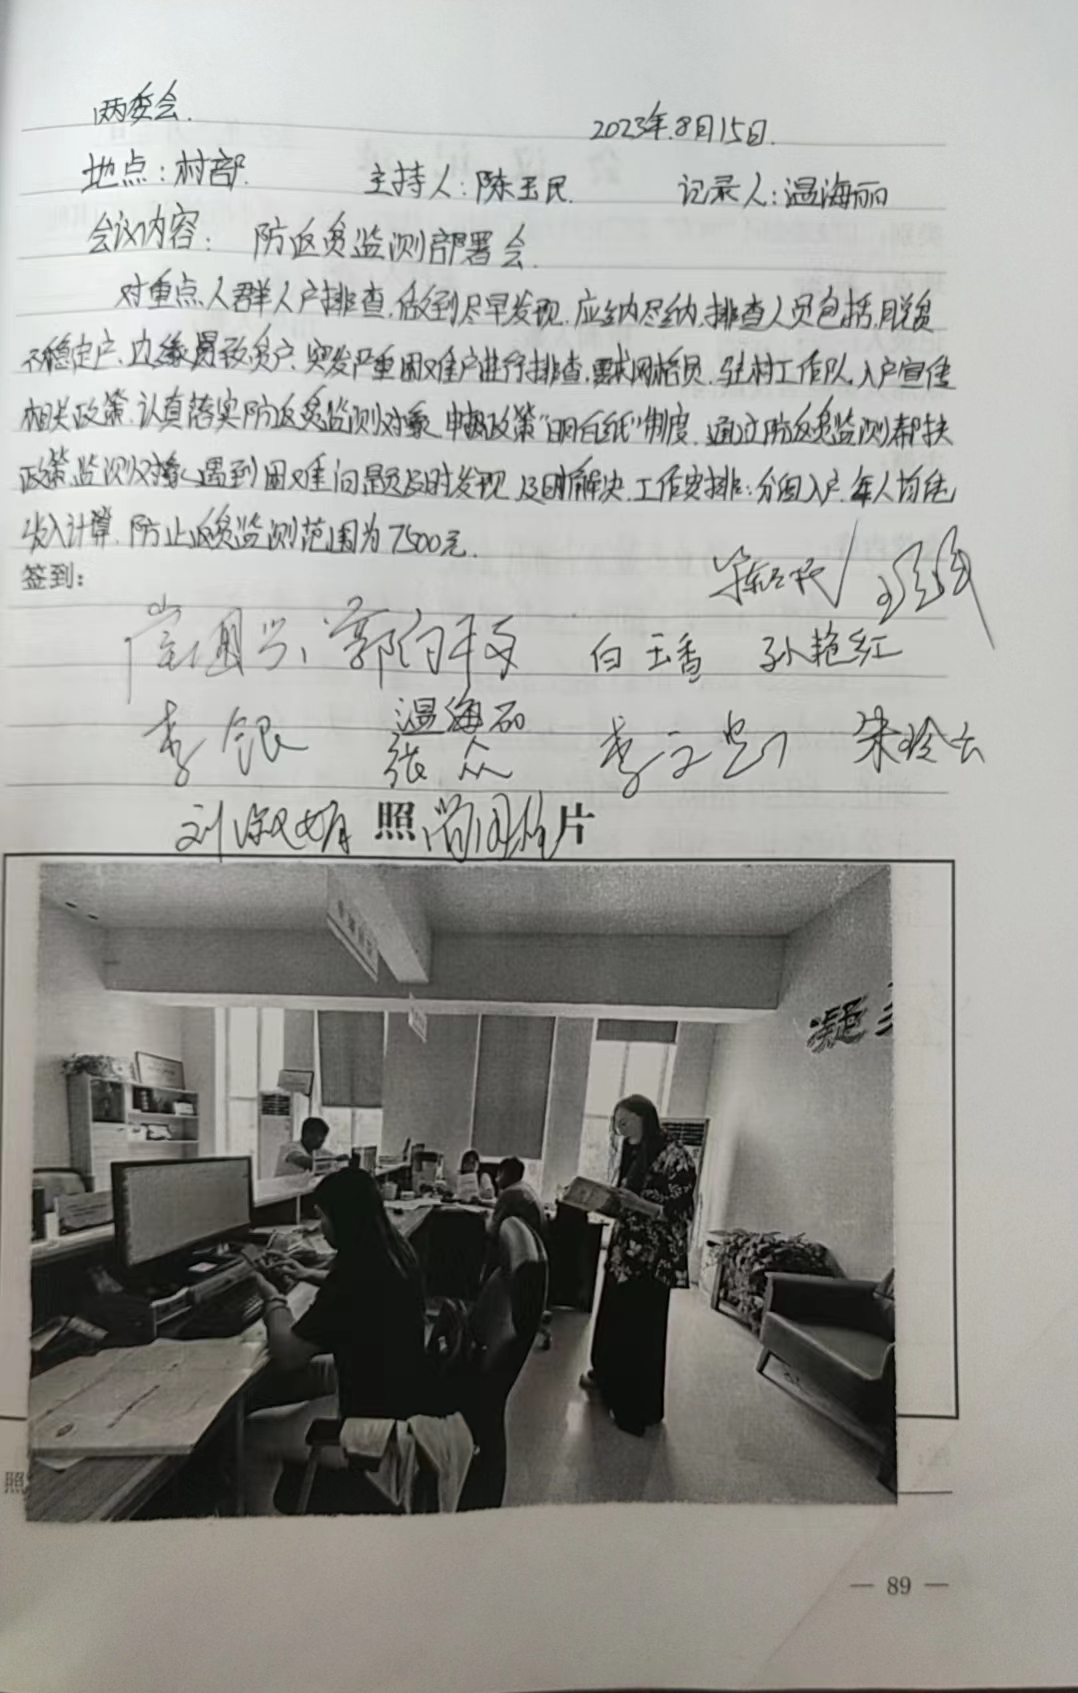 两委会.
2023年.8月15日.
地点：村部. 主持人：陈玉民. 记录人：温海丽
会议内容： 防返贫监测部署会.
对重点人群人户排查，做到尽早发现.应纳尽纳，排查人员包括，脱贫
不稳定户、边缘易致贫户、突发严重困难户进行排查，要求网格员.驻村工作队，入户宣传
相关政策.认真落实防返贫监测对象、申报政策“明白纸”制度.通过防返贫监测帮扶
政策、监测对象、遇到困难问题及时发现.及时解决.工作安排：分组入户.年人均纯
收入计算.防止返贫监测范围为7500元.
签到：
郭 白玉香 孙艳红
李银 温海丽 朱玲云
张众 李
刘淑娟 照 片
凝
照
— 89 —